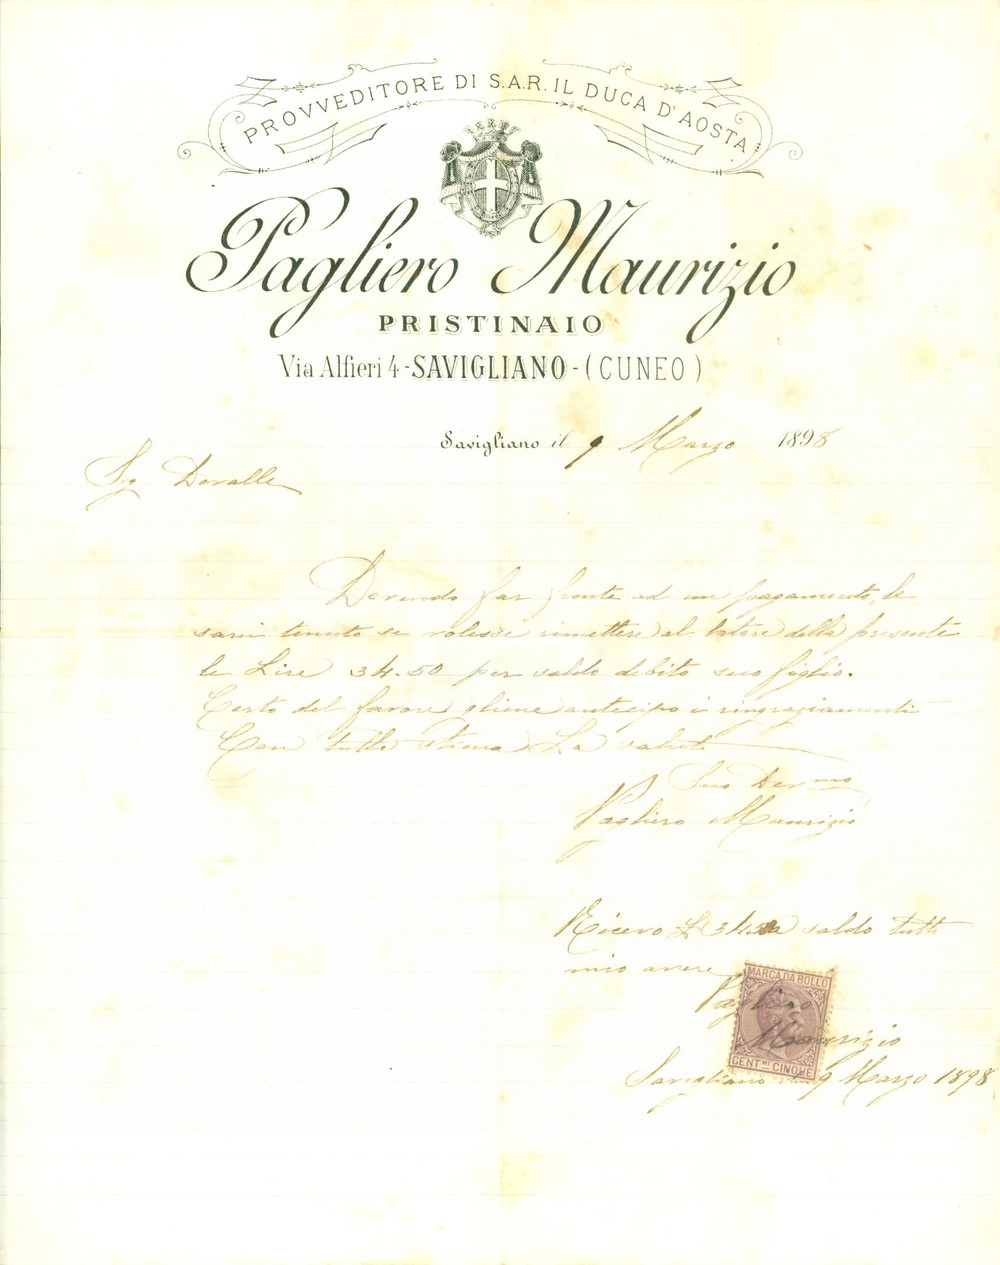 PROVVEDITORE DI S.A.R. IL DUCA D'AOSTA
Pagliero Maurizio
PRISTINAIO
Via Alfieri 4 - SAVIGLIANO - (CUNEO)
Savigliano il 9 Marzo 1898
Sig Dovalle
Dovendo far fronte ad un pagamento, le
sarei tenuto se volesse rimettere al latore della presente
le Lire 34.50 per saldo debito suo figlio.
Certo del favore gliene anticipo i ringraziamenti
Con tutta stima La saluto
Suo Dev.mo
Pagliero Maurizio
Ricevo L 34.50 a saldo tutto
mio avere
MARCA DA BOLLO
Pagliero
Maurizio
CENT.MI CINQUE
Savigliano 9 Marzo 1898